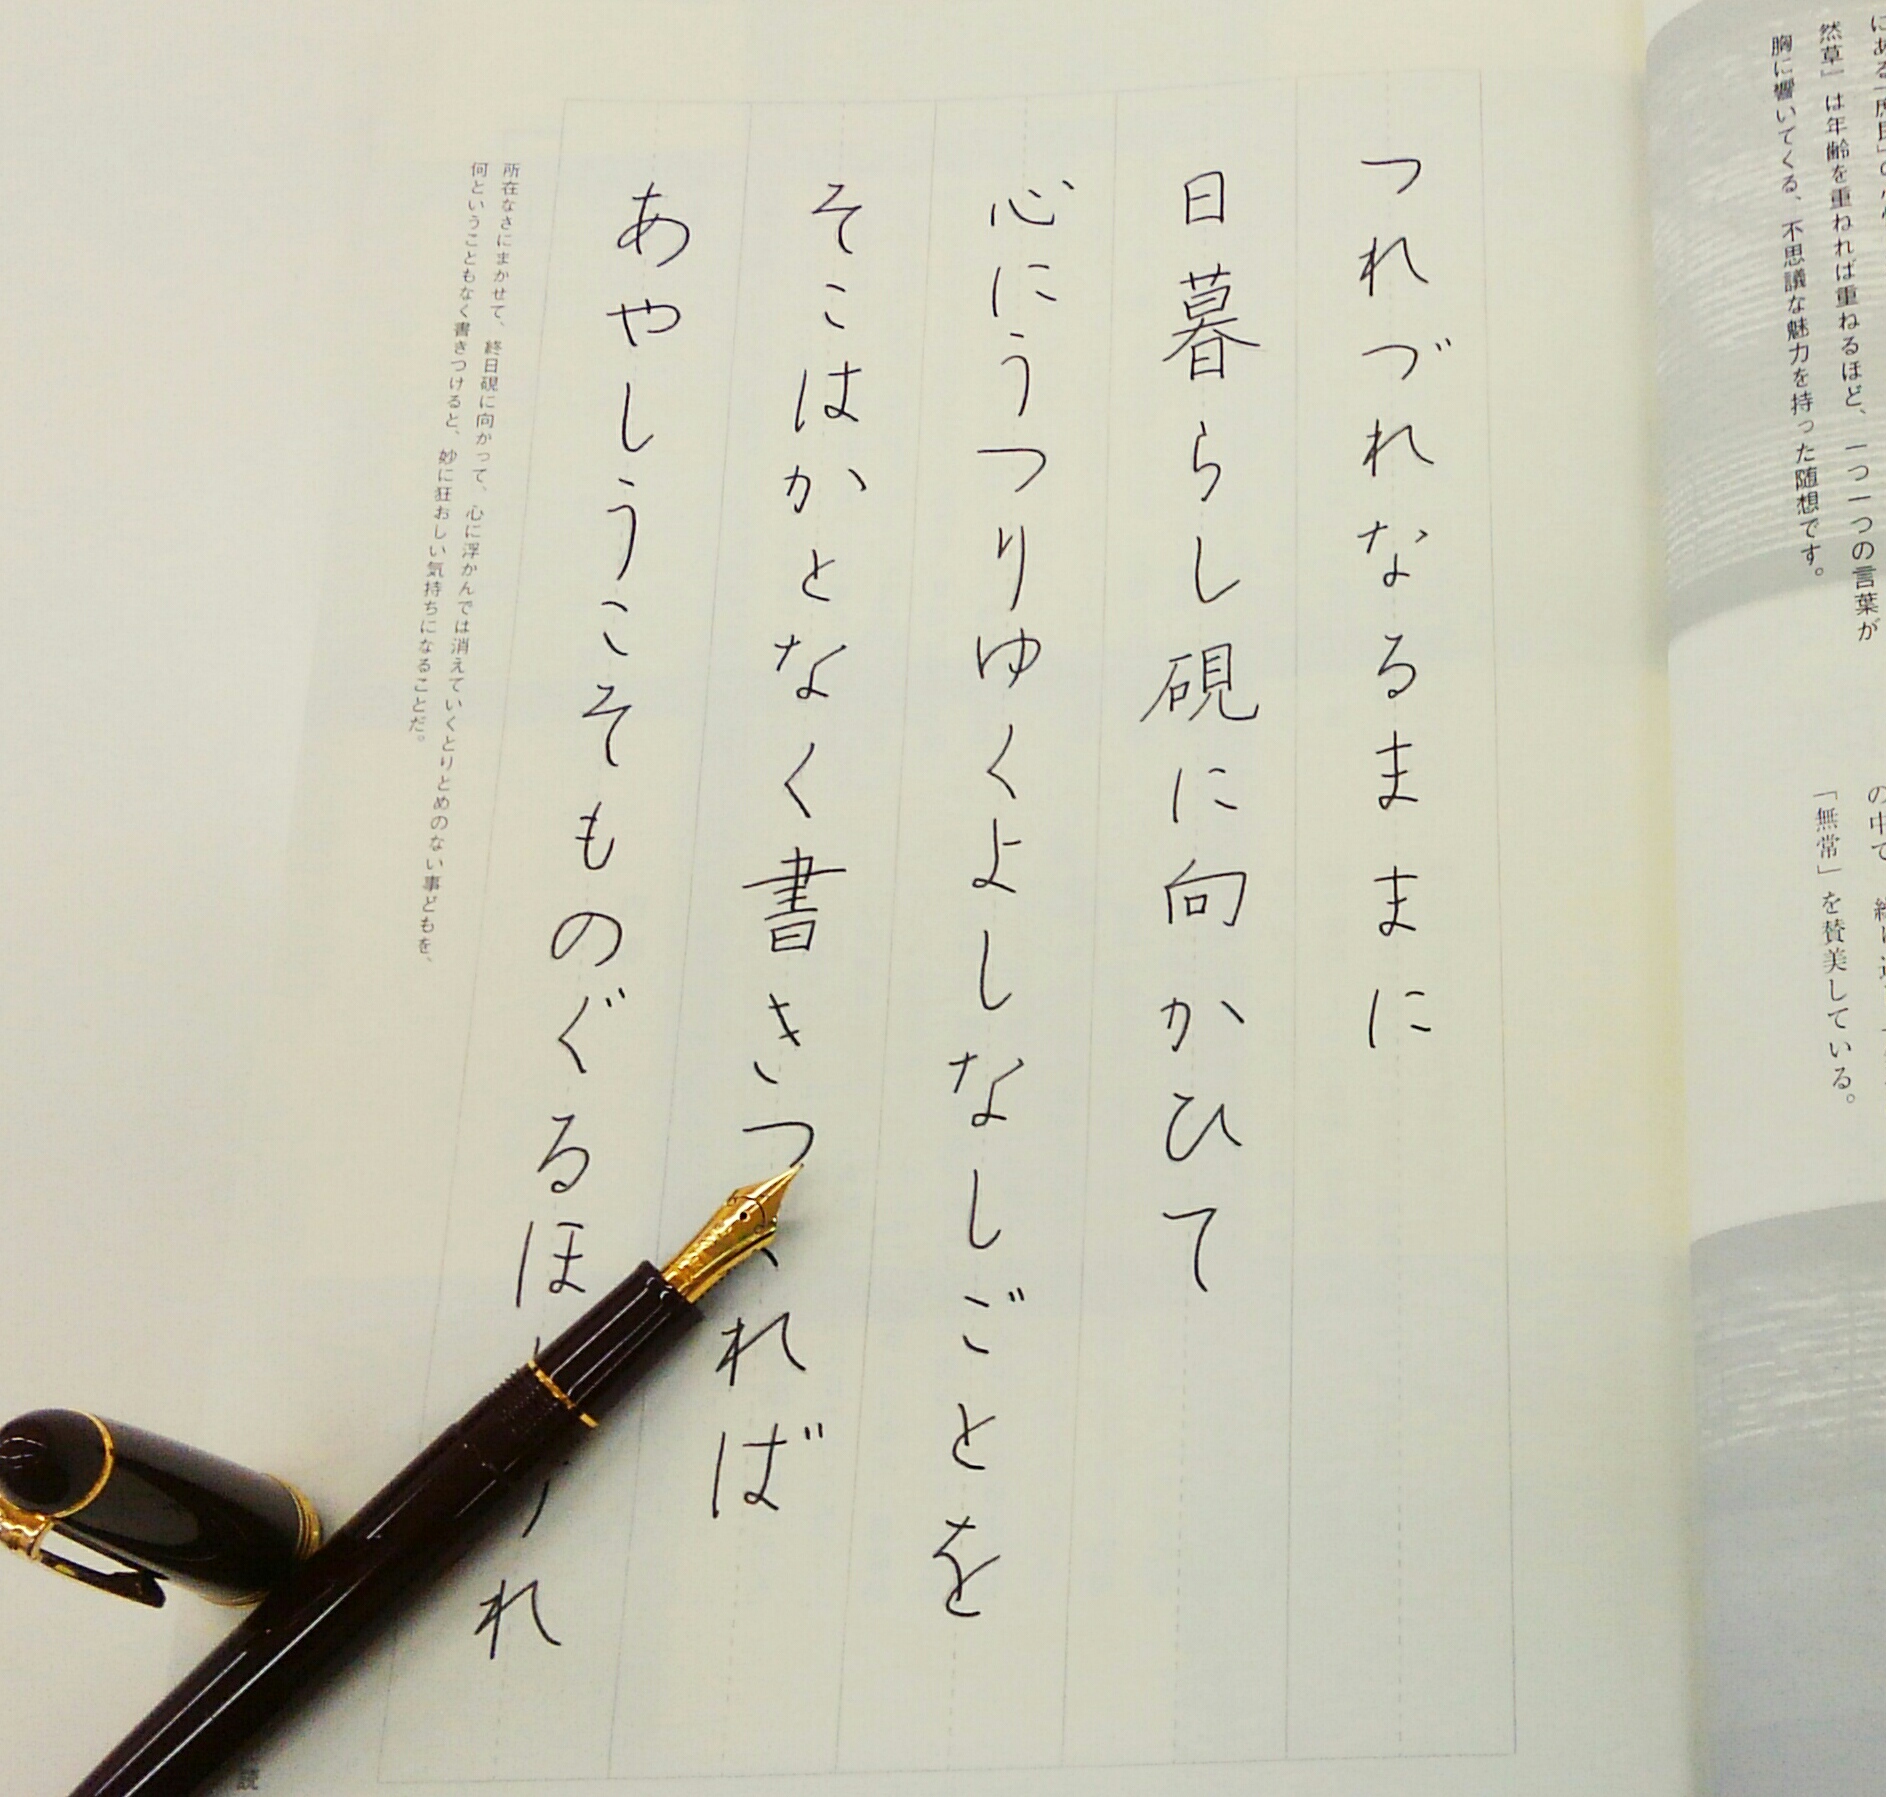 にある「庶民」の心
然草』は年齢を重ねれば重ねるほど、一つ一つの言葉が
胸に響いてくる、不思議な魅力を持った随想です。
の中で
「無常」を賛美している。
つれづれなるままに
日暮らし硯に向かひて
心にうつりゆくよしなしごとを
そこはかとなく書きつ れば
あやしうこそものぐるほ れ
所在なさにまかせて、終日硯に向かって、心に浮かんでは消えていくとりとめのない事どもを、
何ということもなく書きつけると、妙に狂おしい気持ちになることだ。
読